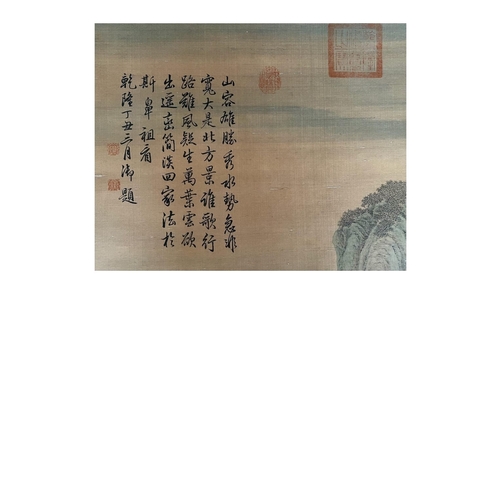 山容雄勝秀水勢急非
寬大是北方景誰歌行
路難風疑生萬葉雲欲
出遙巒簡淡四家法於
斯鼻祖看
乾隆丁丑三月御題